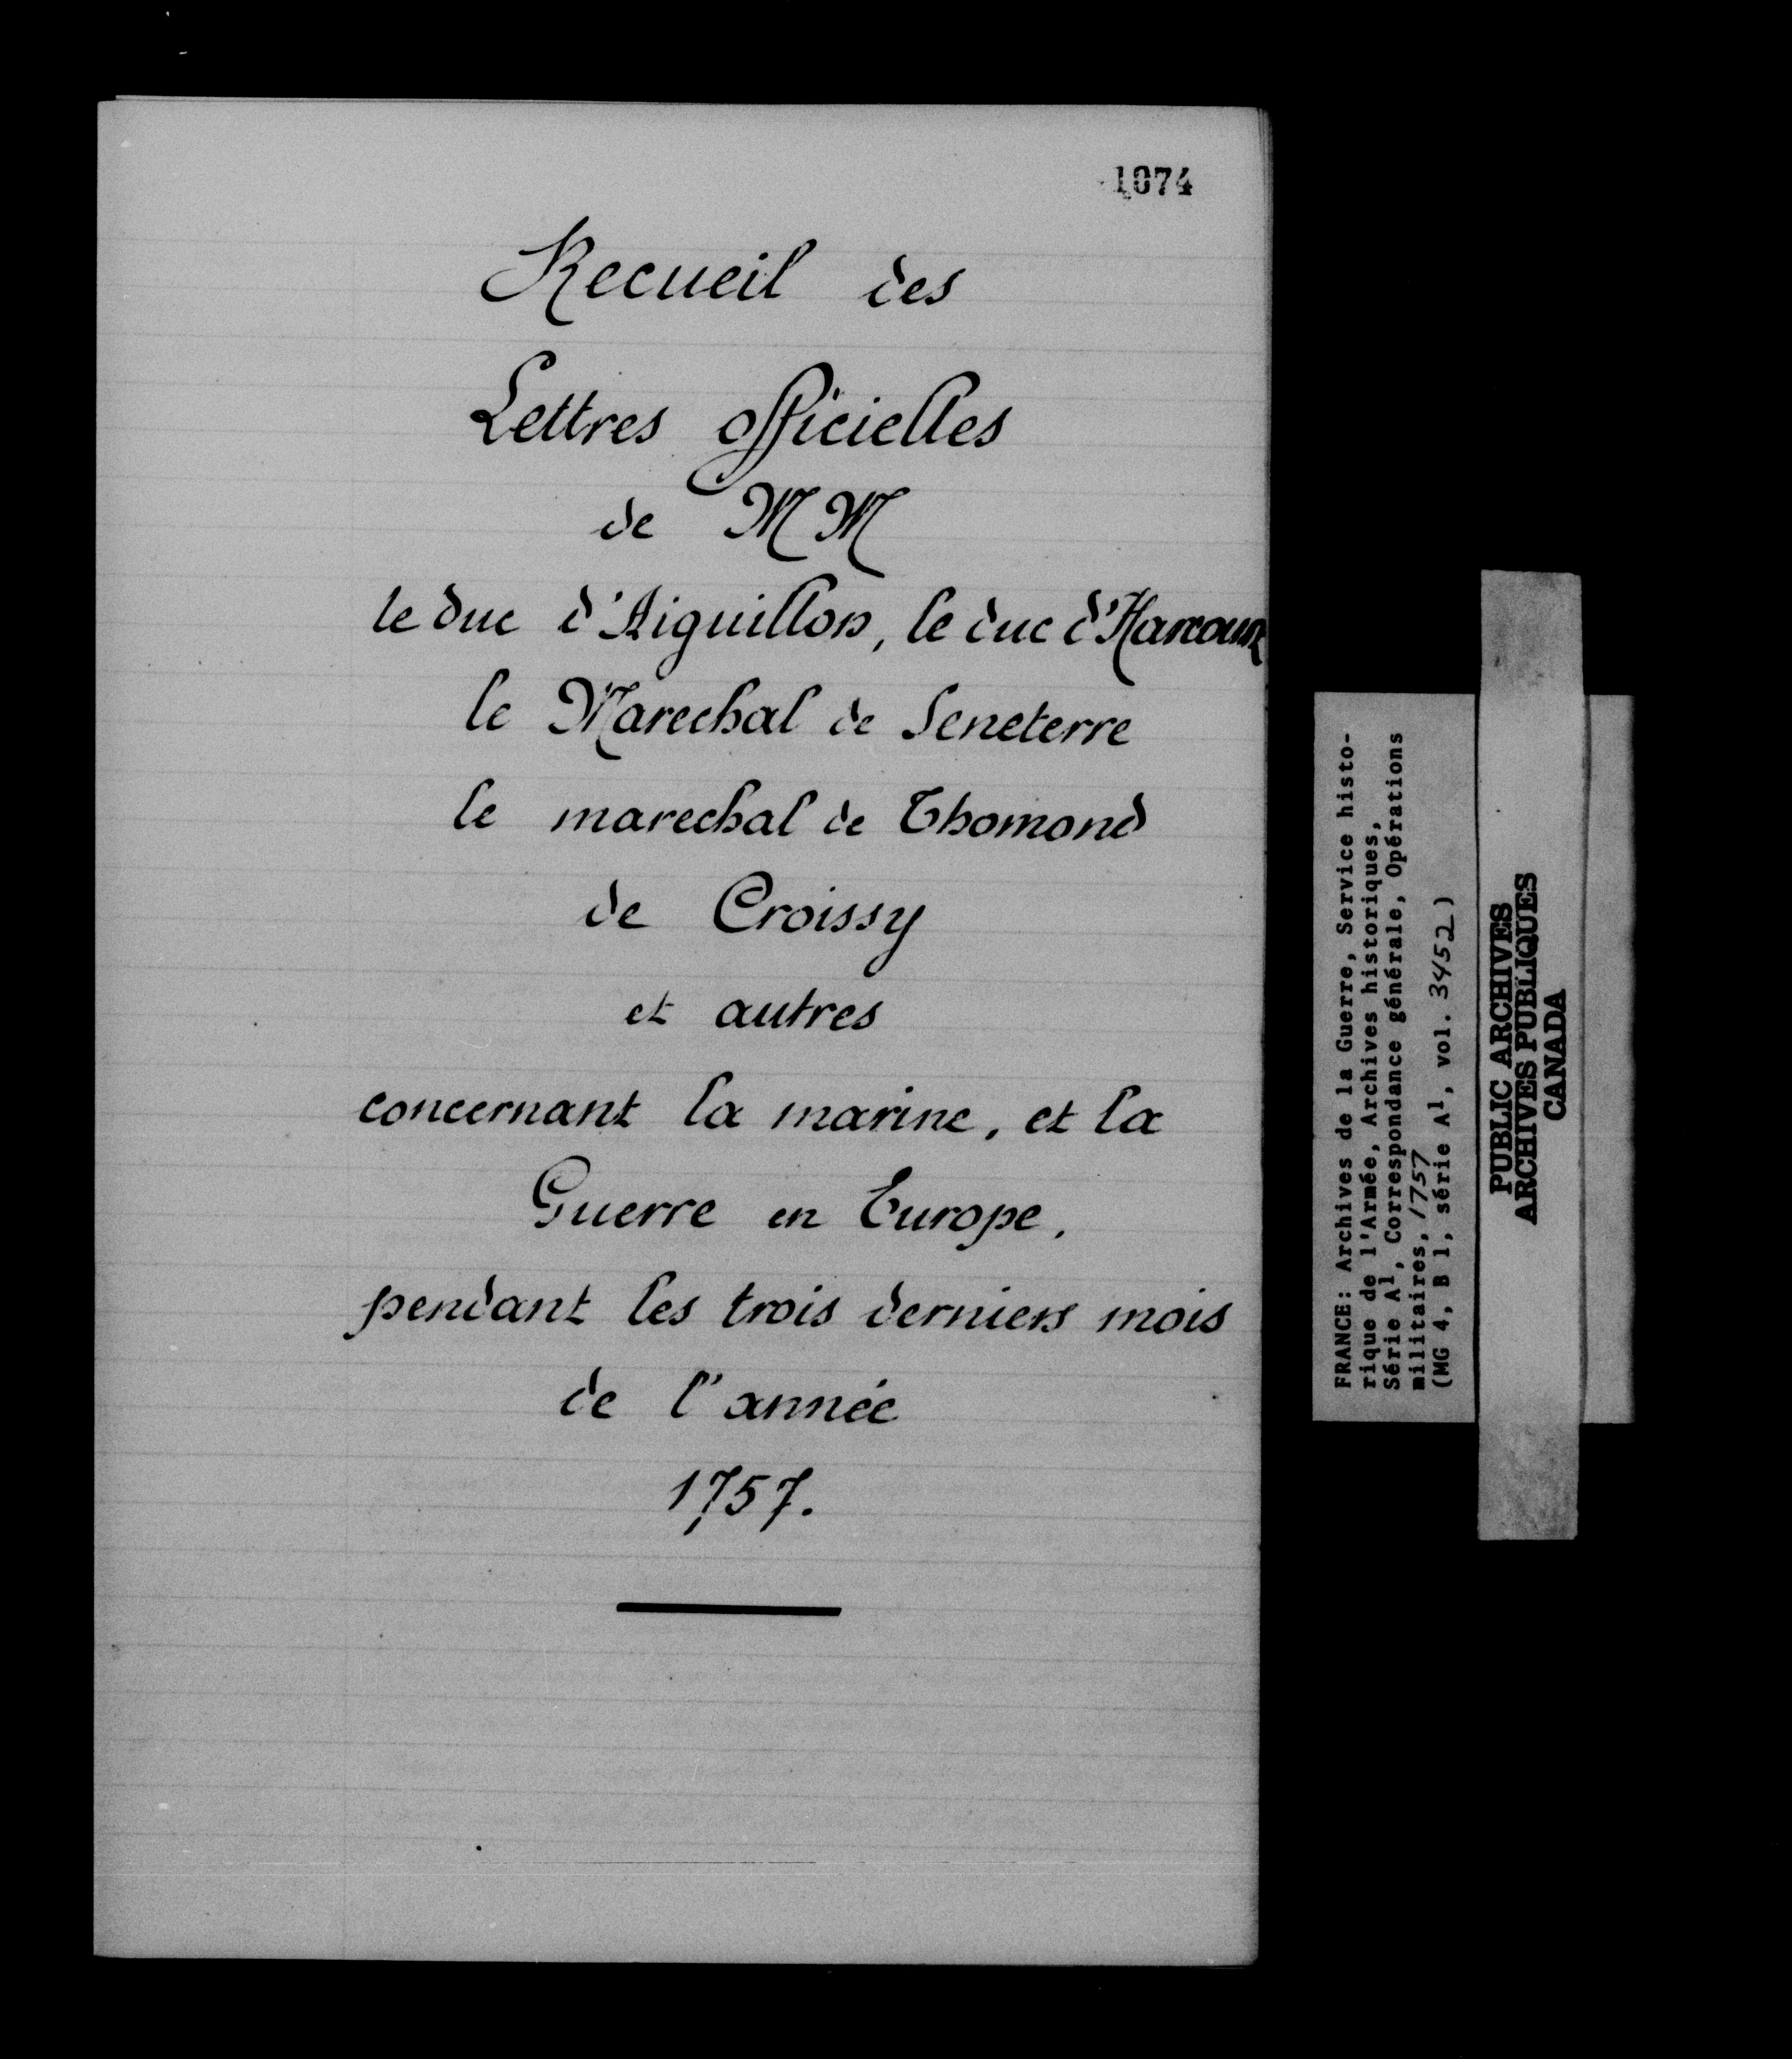 1074
Recueil des
Lettres officielles
de MM
le duc d'Aiguillon, le duc d'Harcourt
le Marechal de Seneterre
le marechal de Thomond
de Croissy
et autres
concernant la marine, et la
Guerre en Europe.
pendant les trois derniers mois
de l'année
1757.
FRANCE: Archives de la Guerre, Service histo-
rique de l'Armée, Archives historiques,
Série A1, Correspondance générale, Opérations
militaires, 1757
(MG 4, B 1, série A1, vol. 3452)
PUBLIC ARCHIVES
ARCHIVES PUBLIQUES
CANADA